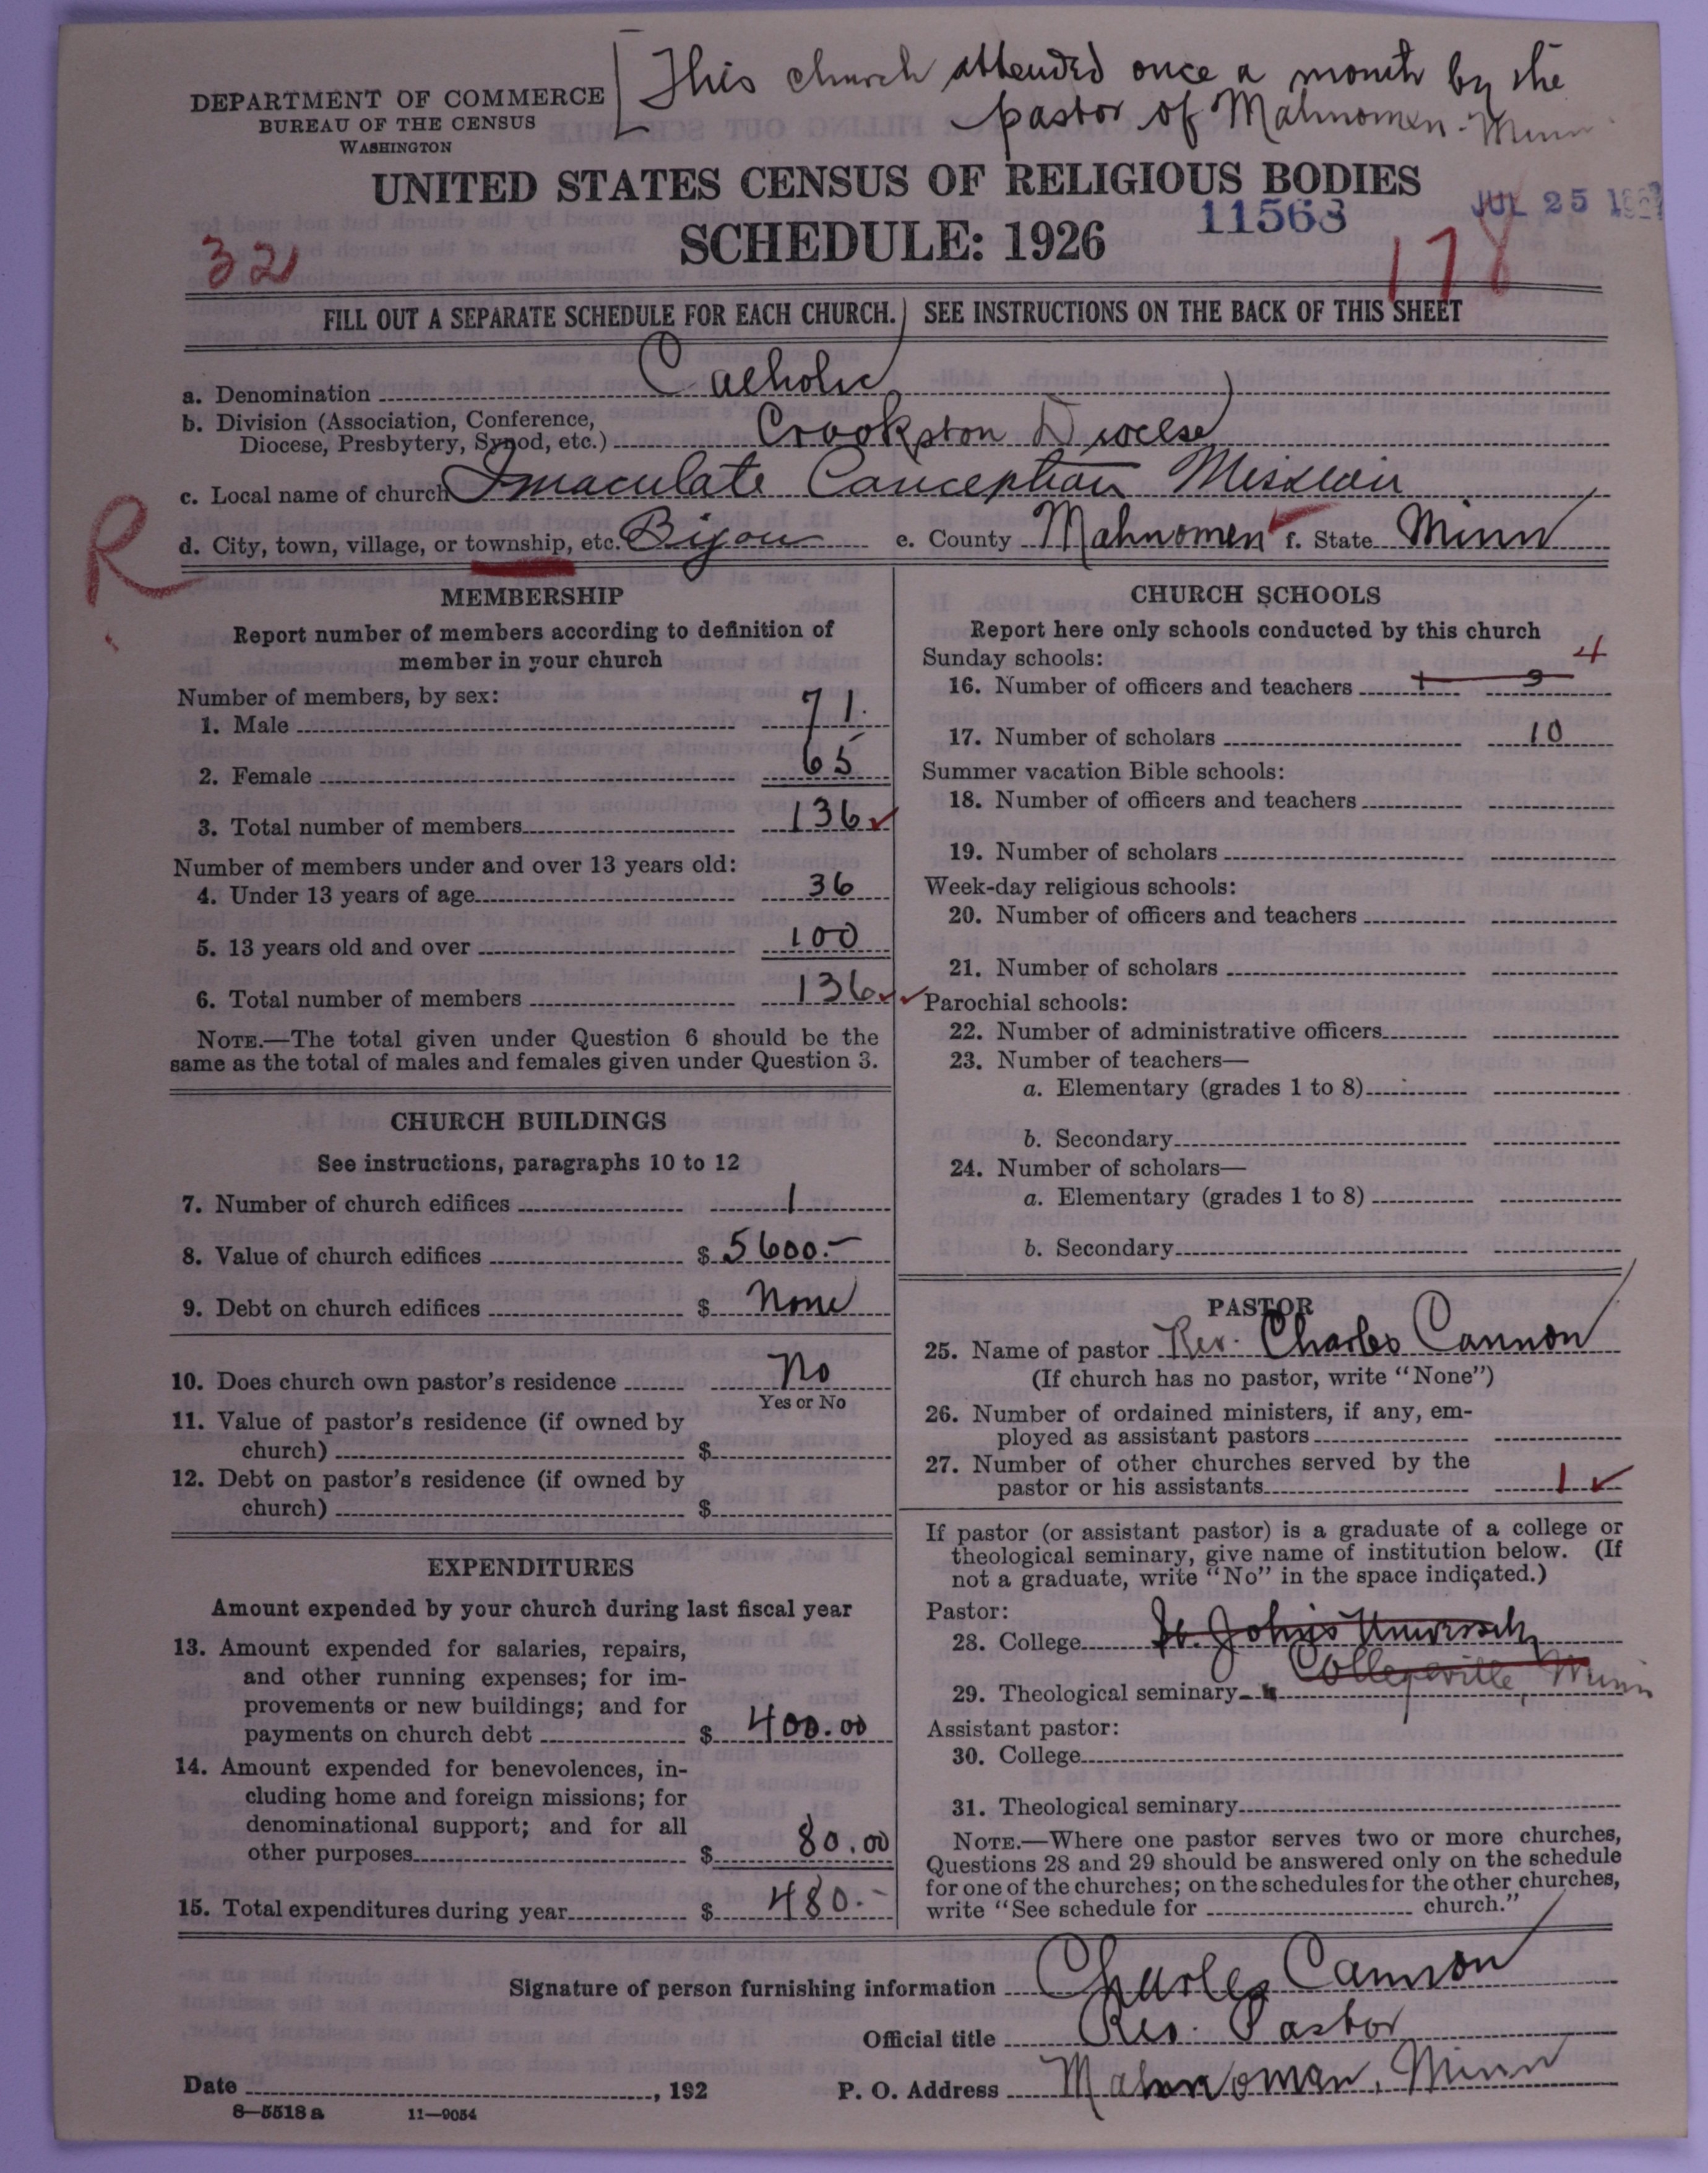 [This church attended once a month by the
pastor of Mahnomen. Minn
DEPARTMENT OF COMMERCE
BUREAU OF THE CENSUS
WASHINGTON
UNITED STATES CENSUS OF RELIGIOUS BODIES
SCHEDULE: 1926
11563
JUL 25 192
32
178
FILL OUT A SEPARATE SCHEDULE FOR EACH CHURCH. SEE INSTRUCTIONS ON THE BACK OF THIS SHEET
a. Denomination Catholic
b. Division (Association, Conference,
Diocese, Presbytery, Synod, etc.) Crookston Diocese
c. Local name of church Immaculate Conception Mission
R
d. City, town, village, or township, etc. Bijou e. County Mahnomen f. State Minn
MEMBERSHIP
Report number of members according to definition of
member in your church
Number of members, by sex:
1. Male 71.
2. Female 65
3. Total number of members 136 ✓
Number of members under and over 13 years old:
4. Under 13 years of age 36
5. 13 years old and over 100
6. Total number of members 136 ✓✓
NOTE.—The total given under Question 6 should be the
same as the total of males and females given under Question 3.
CHURCH BUILDINGS
See instructions, paragraphs 10 to 12
7. Number of church edifices 1
8. Value of church edifices $ 5600.—
9. Debt on church edifices $ None
10. Does church own pastor's residence No
Yes or No
11. Value of pastor's residence (if owned by
church) $
12. Debt on pastor's residence (if owned by
church) $
EXPENDITURES
Amount expended by your church during last fiscal year
13. Amount expended for salaries, repairs,
and other running expenses; for im-
provements or new buildings; and for
payments on church debt $ 400.00
14. Amount expended for benevolences, in-
cluding home and foreign missions; for
denominational support; and for all
other purposes $ 80.00
15. Total expenditures during year $ 480.—
CHURCH SCHOOLS
Report here only schools conducted by this church
Sunday schools:
4
16. Number of officers and teachers 1 3
17. Number of scholars 10
Summer vacation Bible schools:
18. Number of officers and teachers
19. Number of scholars
Week-day religious schools:
20. Number of officers and teachers
21. Number of scholars
Parochial schools:
22. Number of administrative officers
23. Number of teachers—
a. Elementary (grades 1 to 8)
b. Secondary
24. Number of scholars—
a. Elementary (grades 1 to 8)
b. Secondary
PASTOR
25. Name of pastor Rev. Charles Cannon
(If church has no pastor, write "None")
26. Number of ordained ministers, if any, em-
ployed as assistant pastors
27. Number of other churches served by the
pastor or his assistants 1 ✓
If pastor (or assistant pastor) is a graduate of a college or
theological seminary, give name of institution below. (If
not a graduate, write "No" in the space indicated.)
Pastor:
28. College St. John's University
Collegeville, Minn
29. Theological seminary
Assistant pastor:
30. College
31. Theological seminary
NOTE.—Where one pastor serves two or more churches,
Questions 28 and 29 should be answered only on the schedule
for one of the churches; on the schedules for the other churches,
write "See schedule for church."
Signature of person furnishing information Charles Cannon
Official title Rev. Pastor
Date , 192 P. O. Address Mahnoman, Minn
8—5518 a 11—9054